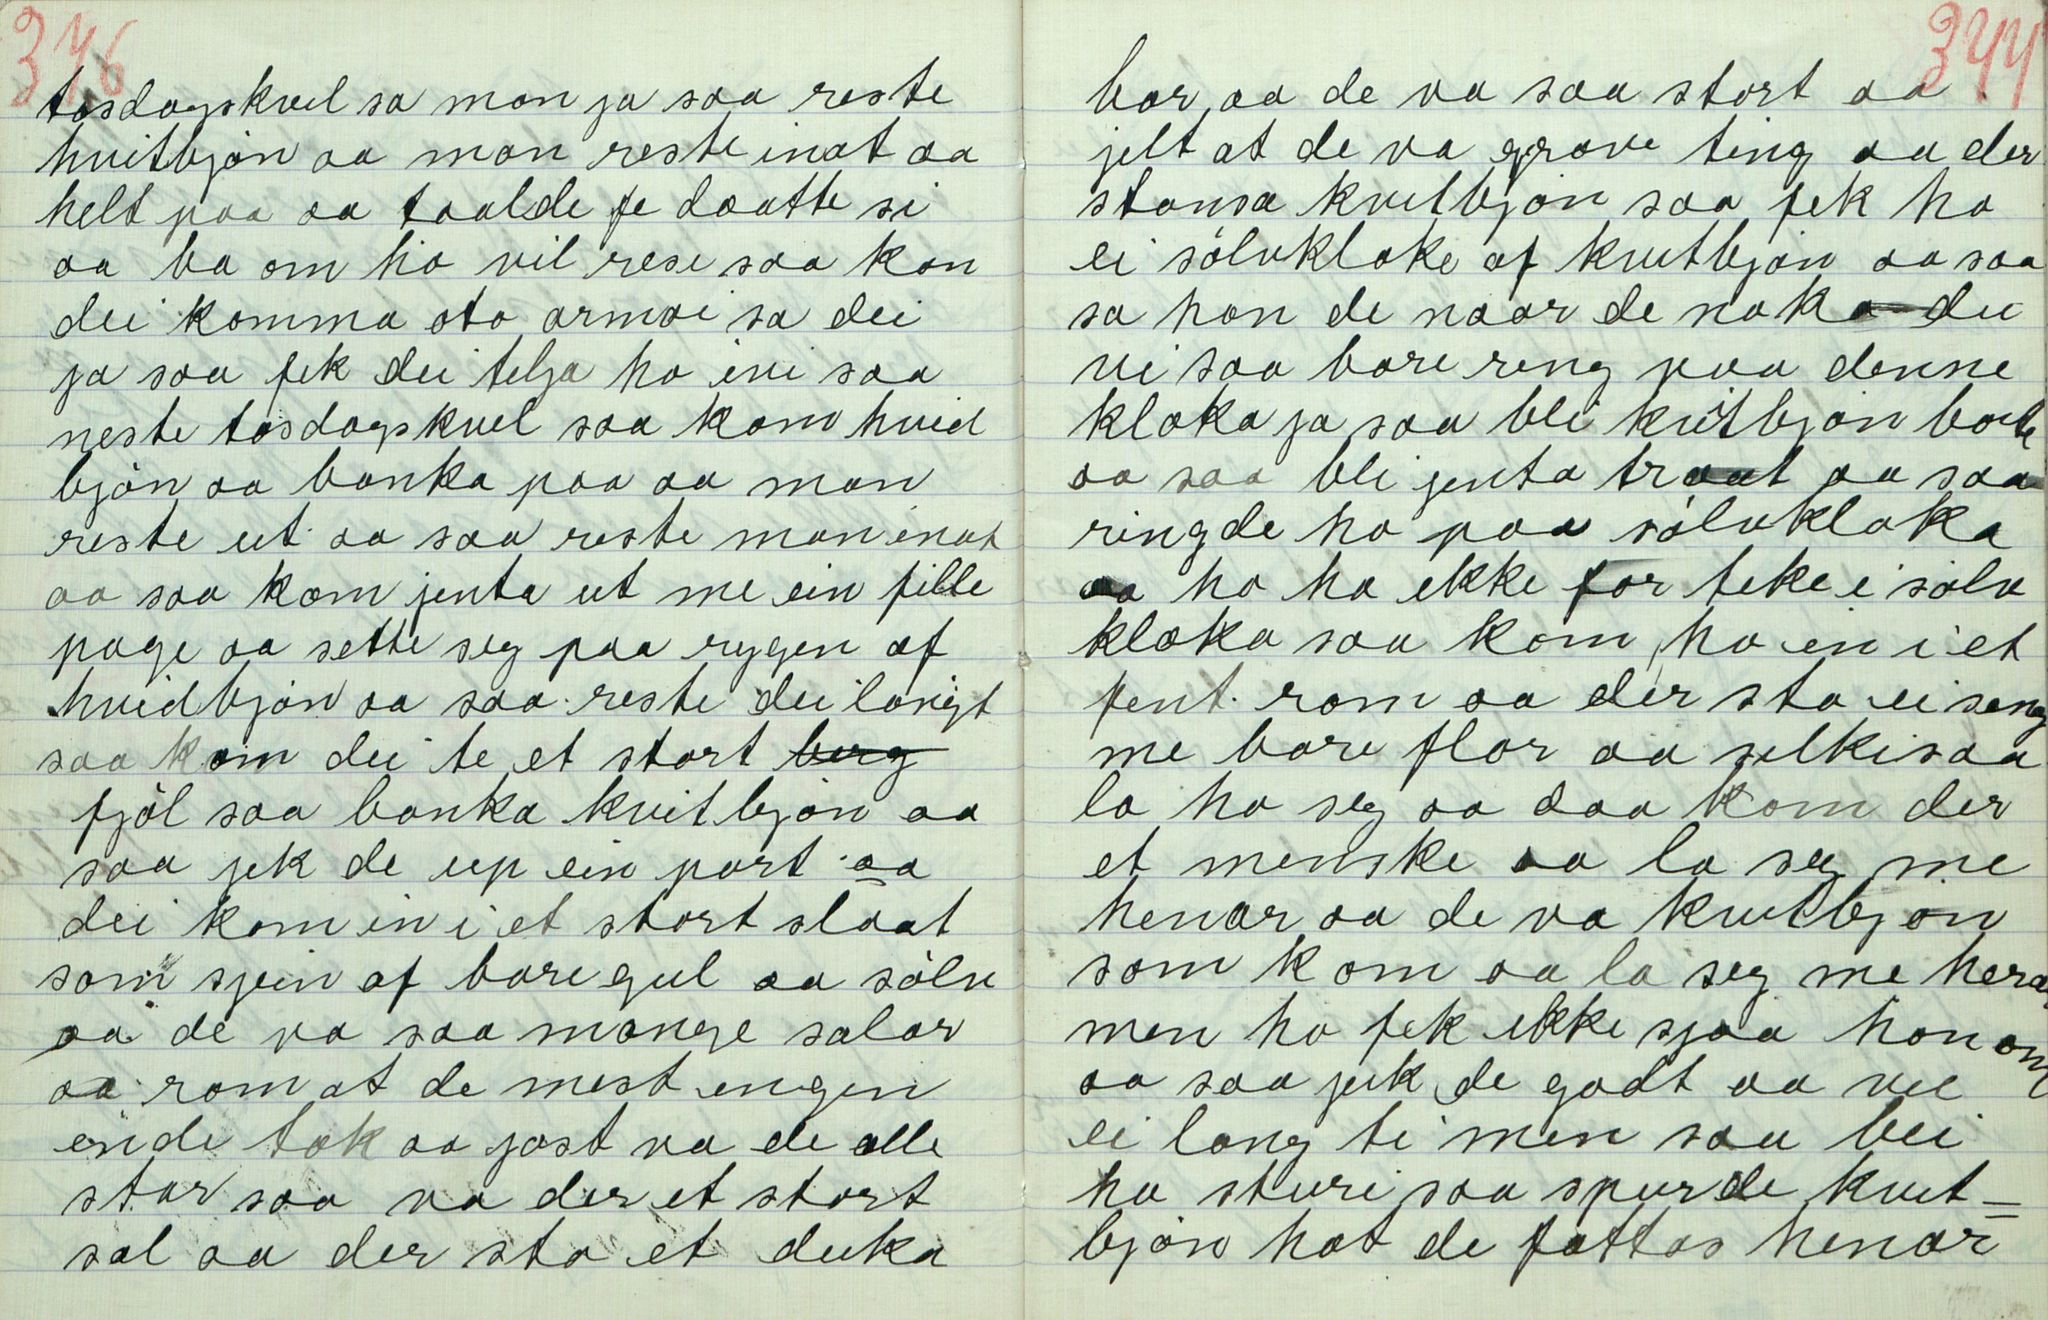 346
tosdagskvel sa man ja saa reste
hvitbjøn aa man reste inat aa
helt paa aa taalde fe daatte si
aa ba om ho vil rese saa kan
dei komma oto armoi sa dei
ja saa fek dei telja ho ivi saa
neste tosdagskvel saa kom hvid
bjøn aa banka paa aa man
reste ut aa saa reste man inat
aa saa kom jenta ut me ein fille
page aa sette seg paa rygen af
hvidbjøn aa saa reste dei langt
saa kom dei te et stort berg
fjøl saa banka kvitbjøn aa
saa jek de up ein port aa
dei kom in i et stort slaat
som sjein af bare gul aa sølv
aa de va saa mange salar
aa rom at de mest engen
ende tok aa jost va de alle
star saa va der et stort
sal aa der sto et deka
344
bor aa de va saa stort aa
jelt at de va grove ting aa der
stansa kvitbjøn saa fek ho
ei sølvkloke af kvitbjøn aa saa
sa han de naar de noko dei
vi saa bare reng paa denne
kloka ja saa bli kvitbjøn borte
aa saa bli jenta traat aa saa
ringde ho paa sølvkloka
aa ho ha ikke for teke i sølv
kloka saa kom ho en i et
pent rom aa der sto ei seng
me bare flor aa silki saa
la ho seg aa daa kom der
et menske aa la seg me
henar aa de va kvitbjøn
som kom aa la seg me henar
men ho fek ikke sjaa honom
aa saa jek de godt aa vel
ei lang ti men saa blei
ho sturi saa spurde kvit=
bjøn hot de fattas henar